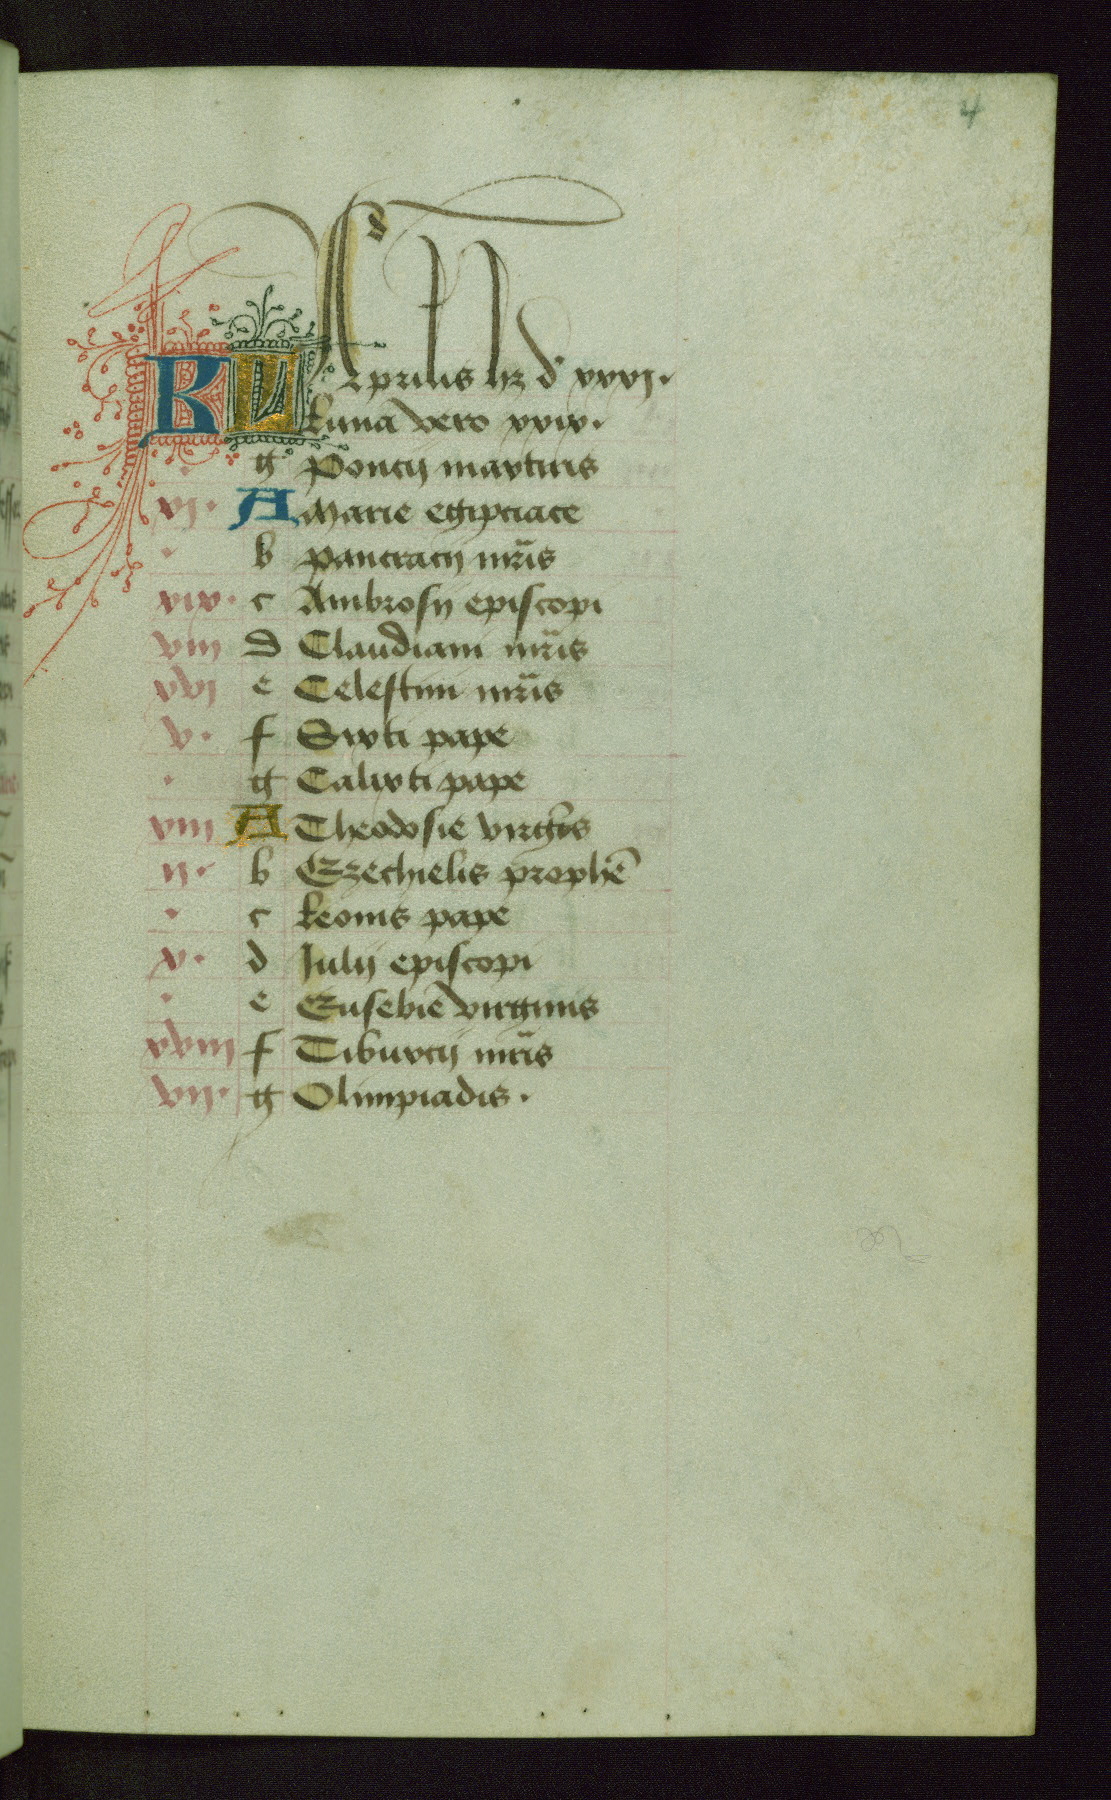 4
KL Aprilis hz d xxxj.
Luna vero xxix.
. g Poncij martiris
vj. A Marie egiptiace
. b pancracij mr̄is
xix. c Ambrosij episcopi
viii d Claudiani mr̄is
xvi e Celestini mr̄is
v. f Sixti pape
. g Calixti pape
viii A Theodosie virgis
ij. b Ezechielis prophē
. c Leonis pape
x. d Julij episcopi
. e Eusebie virginis
xviii f Tiburcij mr̄is
vij. g Olimpiadis.